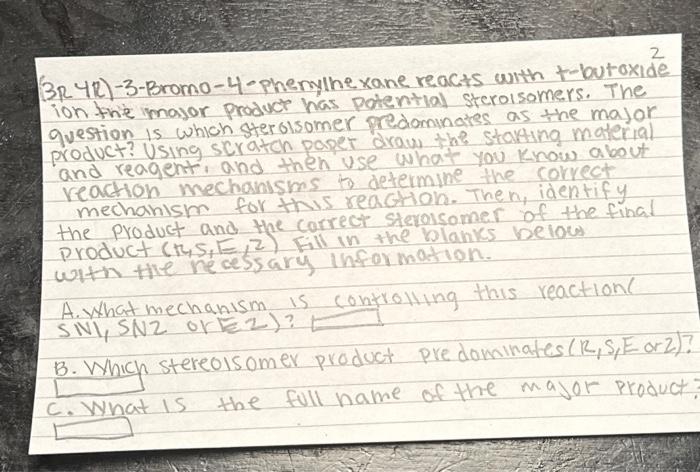 2
(3R 4R)-3-Bromo-4-phenylhexane reacts with t-butoxide
ion the major product has potential steroisomers. The
question is which sterolsomer predominates as the major
product? Using scratch paper draw the starting material
and reagent, and then use what you know about
reaction mechanisms to determine the correct
mechanism for this reaction. Then, identify
the product and the correct sterolsomer of the final
product (R,S,E,Z) Fill in the blanks below
with the necessary information.
A. What mechanism is controlling this reaction(
SN1, SN2 or E2)?
B. Which stereoisomer product predominates (R,S,E or Z)?
C. What is the full name of the major product?